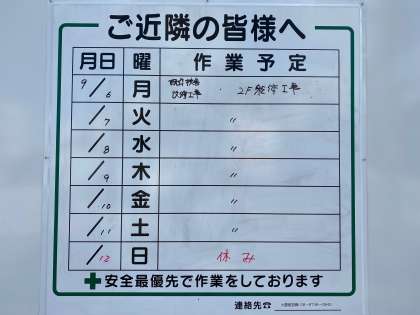 ご近隣の皆様へ
月日 曜 作業予定
9/6 月 改修工事 ・ 2F 工事
/7 火 〃
/8 水 〃
/9 木 〃
/10 金 〃
/11 土 〃
/12 日 休み
安全最優先で作業をしております
連絡先☎